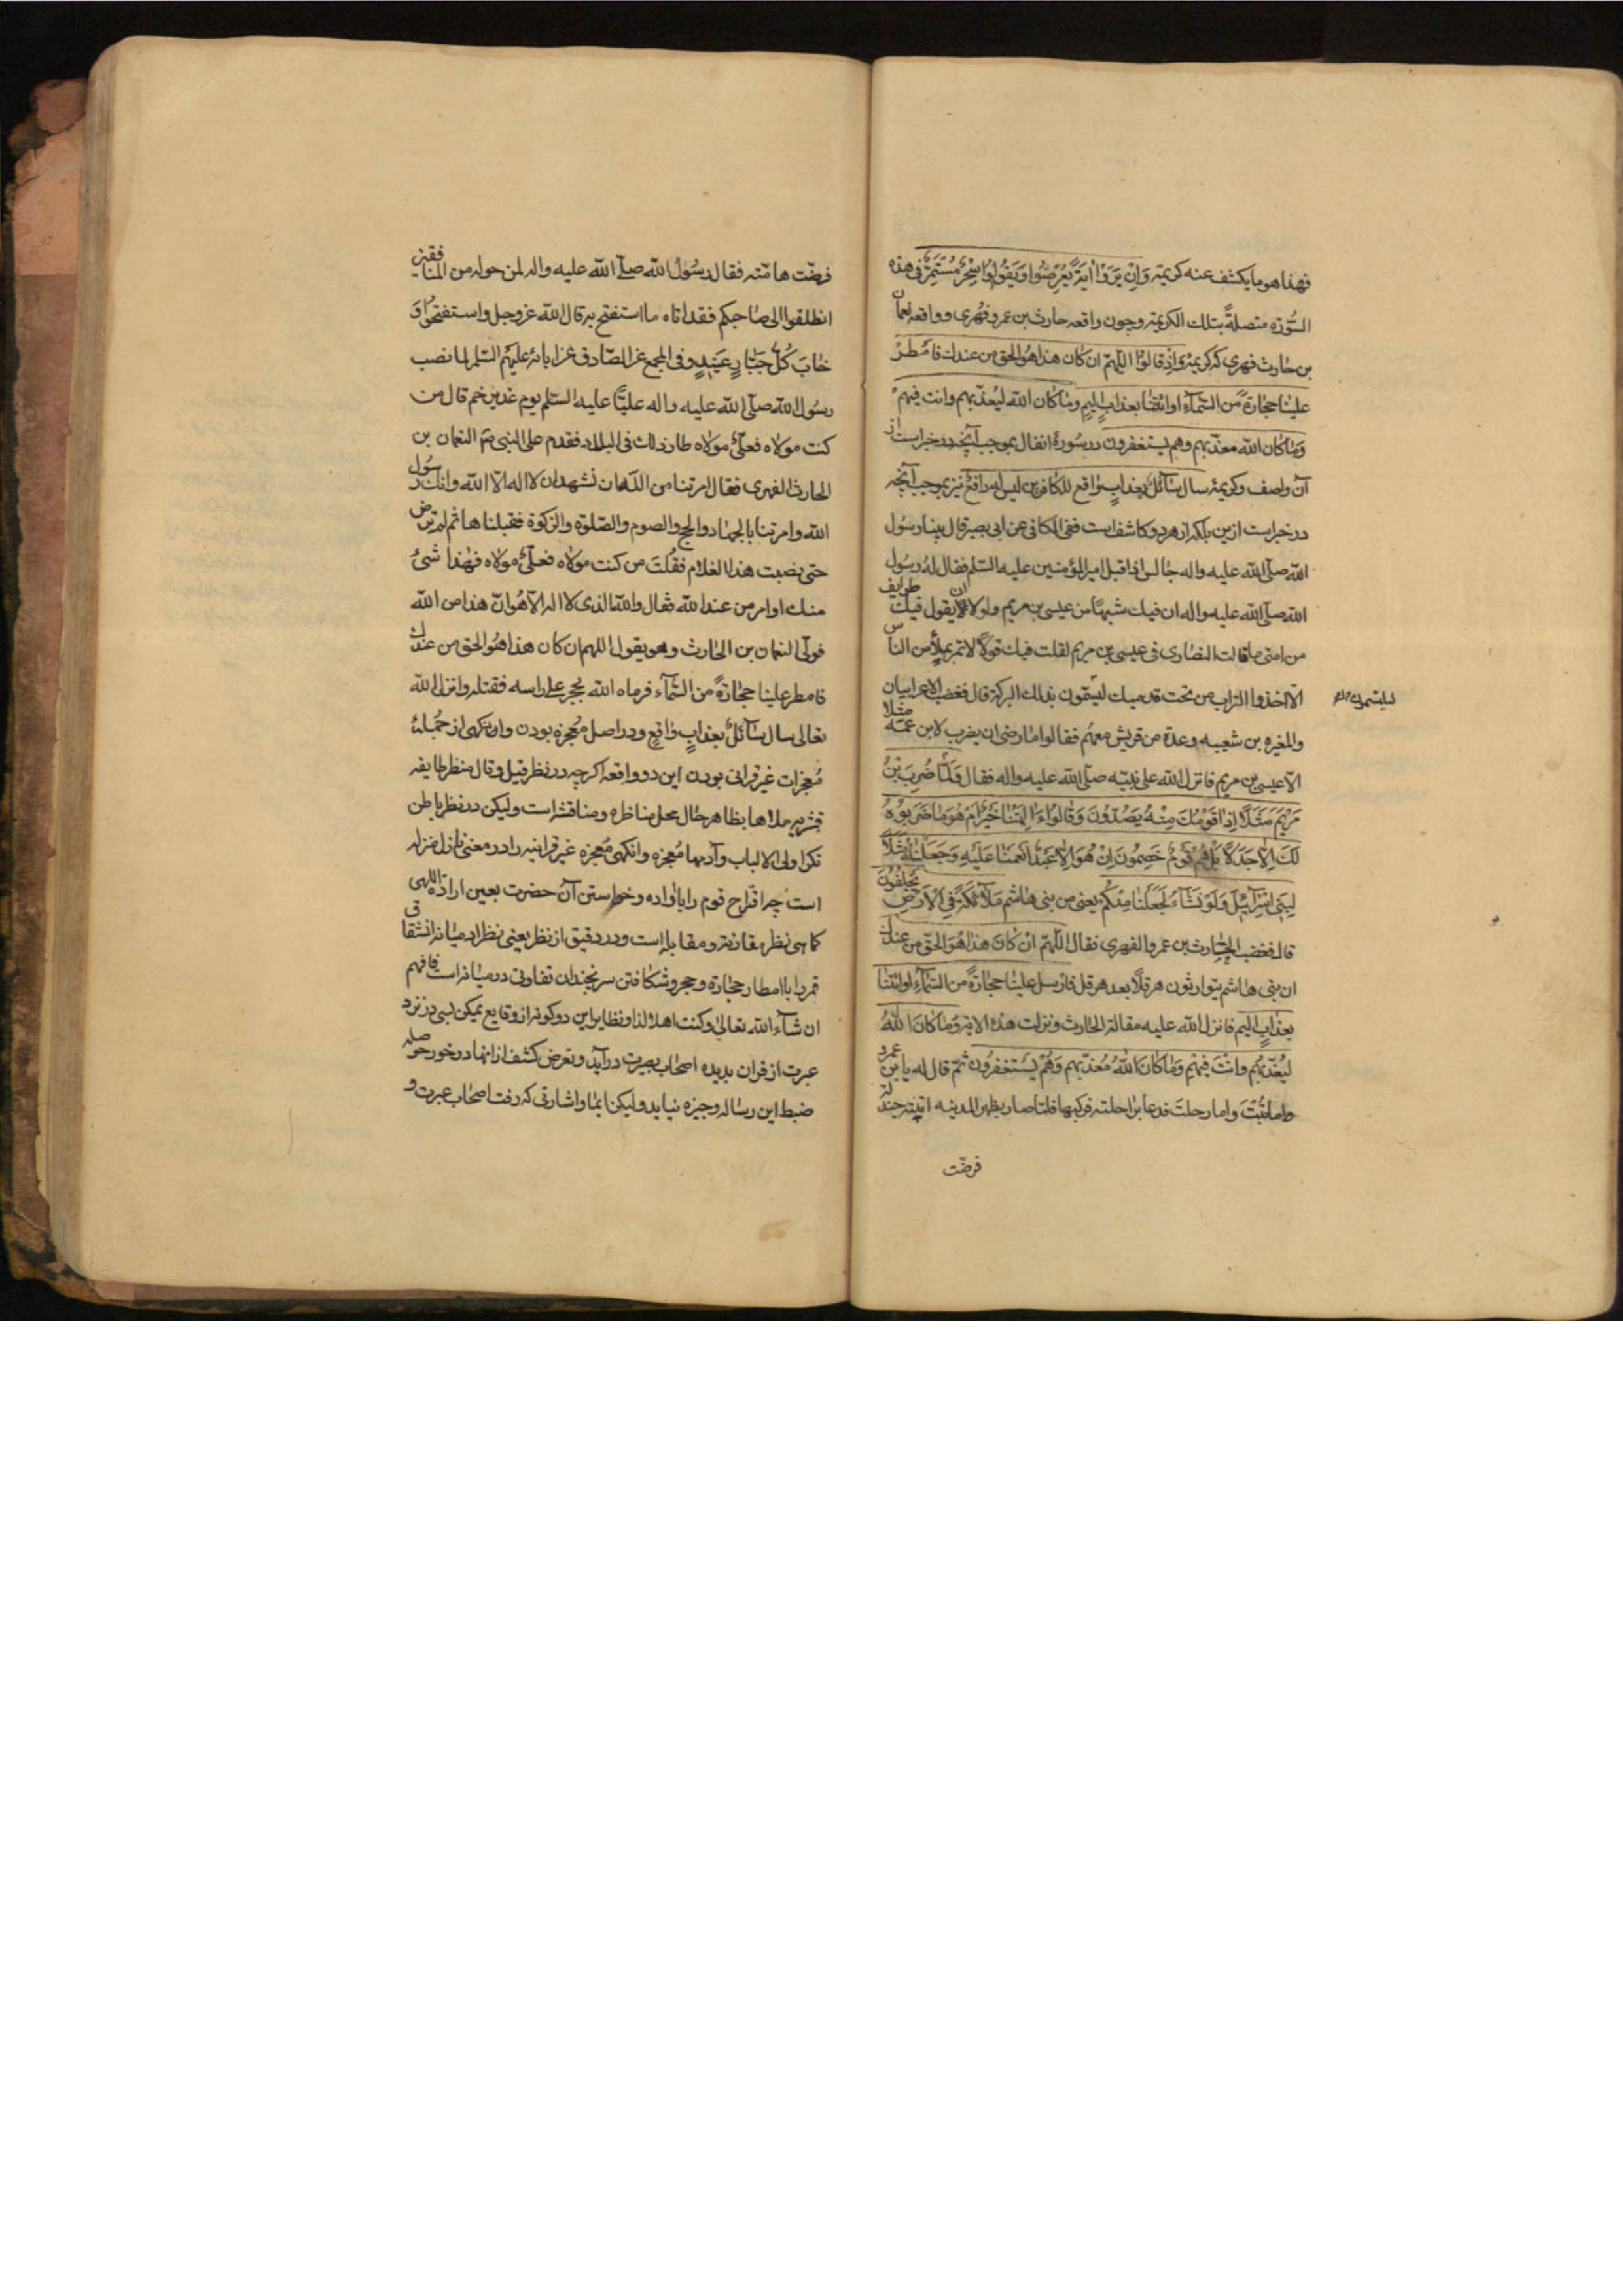 فهذا هو ما یکشف عنه کریمته وَاِنْ یَرَوْا اٰیَةً یُعْرِضُوا وَیَقُولُوا سِحْرٌ مُسْتَمِرٌّ فی هذه
السّورة متصلةً بتلك الکریمة وچون واقعه حارث بن عمرو فهری و واقعه نعمان
بن حارث فهری که کریمهٔ وَاِذْ قالوُا اللّهمّ ان کان هذا هُوَ الحق من عندك فاَمْطِرْ
علینا حجارةً من السّمآءِ اوِ ائتنا بعذابٍ الیمٍ وما کان الله لیُعذّبهم وانت فیهمْ
وَما کان الله معذّبهم وهم یستغفرون در سورهٔ انفال بموجب آنچه در خبر است از
آن واصف و کریمهٔ سال سآئلٌ بعذابٍ واقع للکافرین لیس له دافعٌ نیز بموجب آنچه
در خبر است ازین بلکه از هر دو کاشف است ففی الکافی عن ابی بصیر قال بینا رسول
الله صلّی الله علیه واله جالس اذا قبل امیر المؤمنین علیه السّلم فقال لهُ رسول
الله صلّی الله علیه واله ان فیك شبهًا من عیسی بن مریم ولولا ان یقول فیك طوایف
من امتی ما قالت النصاری فی عیسی بن مریم لقلت فیك قولًا لا تمر بملأٍ من الناس
الّا اخذوا التراب من تحت قدمیك یلتمسون بذلك البرکة قال فغضب الاعرابیان
والمغیره بن شعبه وعدة من قریش معهم فقالوا ما رضی ان یضرب لابن عمّه مثلا
الّا عیسی بن مریم فانزل الله علی نبیّه صلّی الله علیه واله فقال وَلَمّا ضُرِبَ بْنُ
مَرْیَمَ مَثَلًا اِذا قَوْمُكَ مِنْهُ یَصُدُّونَ وَقالُوا ءَاٰلِهَتُنا خَیْرٌ اَمْ هُوَ ما ضَرَبُوهُ
لَكَ اِلّا جَدَلًا بَلْ هُمْ قَوْمٌ خَصِمُونَ اِنْ هُوَ اِلّا عَبْدٌ اَنْعَمْنا عَلَیْهِ وَجَعَلْناهُ مَثَلًا
لِبَنی اِسْرآئیلَ وَلَوْ نَشآءُ لَجَعَلْنا مِنْکُمْ یعنی من بنی هاشم مَلآئِکَةً فِی الْاَرْضِ یَخْلُفُونَ
قال فغضب الحٰارث بن عمرو الفهری فقال اللّهمّ انْ کانَ هذا هُوَ الحَقّ من عندك
ان بنی هاشم یتوارثون هرقلًا بعد هرقل فارسل علینا حجارةً من السّمآءِ اوائتنا
بعذابٍ الیم فانزل الله علیه مقالة الحارث ونزلت هذه الایة وَما کانَ اللّٰهُ
لیُعَذّبَهُم وانْتَ فیهِمْ وَما کانَ اللّٰهُ مُعذّبهم وَهُمْ یَسْتغفرُون ثمّ قال له یا بن عمرو
اما تُبْتَ واما رحلتَ فدعا براحلته فرکبها فلمّا صار بظهر المدینه اتته جندلة
فرضّت
فرضّت هامّته فقال رسُولُ اللّه صلّی اللّه علیه واله لمن حوله من المنافقین
انطلقوا الی صاحبکم فقد اتاه ما استفتح به قال اللّه عزّ وجلّ واستفتحُوا وَ
خابَ کُلُّ جَبّارٍ عَنیدٍ وفی المجمع عن الصّادق عن ابائه علیهم السّلم لما نصب
رسول اللّه صلّی اللّه علیه واله علیًّا علیه السّلم یوم غدیر خم قال من
کنت مولاه فعلیٌّ مولاه طار ذلك فی البلاد فقدم علی النبی ص النعمان بن
الحارث الفهری فقال امرتنا من اللّه ان نشهد ان لا اله الّا اللّه وانك رسول
اللّه وامرتنا بالجهاد والحج والصوم والصّلوة والزکوة فقبلناها ثم لم ترض
حتی نصبت هذا الغلام فقلتَ من کنت مولاه فعلیٌّ مولاه فهٰذا شئٌ
منك او امر من عند اللّه فقال واللّه الذی لا اله الّا هُو انّ هذا من اللّه
فولّی النعمان بن الحٰارث وهو یقول اللهم ان کان هذا هُو الحق من عندك
فامطر علینا حجارةً من السّمآء فرماه اللّه بحجر علی راسه فقتله وانزل اللّه
تعالی سال سآئلٌ بعذابٍ واقعٍ ودر اصل مُعجزه بودن وآن نکهی از جُملهٔ
مُعجزات غیر قرانی بودن این دو واقعه اکر چه در نظر قیل و قال منظر طایفه
قشریه ملاها بظاهر حٰال محل مناظره ومناقشه است ولیکن در نظر باطن
نکر اولی الالباب وآدبها مُعجزه وانکهی مُعجزه غیر قرانیه را در معنی نازل منزله
است چه اقراح قوم رابا واده و خواستن آن حضرت بعین ارادهٔ اللهی
کما هی نظر مقارنه و مقابله است ودر دقیق از نظر یعنی نظر اد میانه انشقاق
قمر را با امطار حجارة وحجر وشکافتن سر نجندان تفاوتی در میانه است فافهم
ان شآء اللّه تعالیٰ وکنت اهلا لذا ونظایر این دو کونه از وقایع ممکن بسی در نزد
عبرت از قران بدیده اصحٰاب بصیرت در آید و تعرض کشف از انها در خور حوصله
ضبط این رساله وجیزه نیاید ولیکن ایما واشارتی که رفت اصحٰاب عبرت و